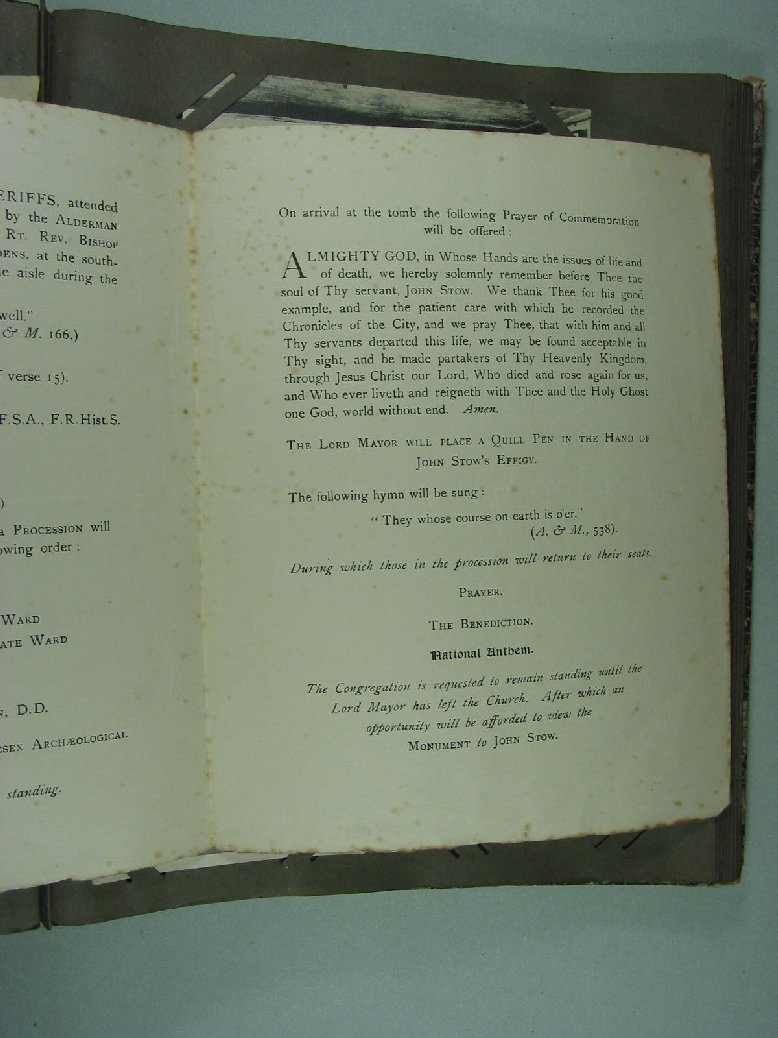 ERIFFS, attended
by the ALDERMAN
RT. REV. BISHOP
DENS, at the south-
e aisle during the
well."
& M. 166.)
verse 15).
F.S.A., F.R.Hist.S.
)
a PROCESSION will
owing order :
WARD
ATE WARD
, D.D.
SEX ARCHÆOLOGICAL
standing.
On arrival at the tomb the following Prayer of Commemoration
will be offered :
ALMIGHTY GOD, in Whose Hands are the issues of life and
of death, we hereby solemnly remember before Thee the
soul of Thy servant, JOHN STOW. We thank Thee for his good
example, and for the patient care with which he recorded the
Chronicles of the City, and we pray Thee, that with him and all
Thy servants departed this life, we may be found acceptable in
Thy sight, and be made partakers of Thy Heavenly Kingdom,
through Jesus Christ our Lord, Who died and rose again for us,
and Who ever liveth and reigneth with Thee and the Holy Ghost
one God, world without end. Amen.
THE LORD MAYOR WILL PLACE A QUILL PEN IN THE HAND OF
JOHN STOW'S EFFIGY.
The following hymn will be sung :
" They whose course on earth is o'er."
(A. & M., 538).
During which those in the procession will return to their seats.
PRAYER.
THE BENEDICTION.
National Anthem.
The Congregation is requested to remain standing until the
Lord Mayor has left the Church. After which an
opportunity will be afforded to view the
MONUMENT to JOHN STOW.